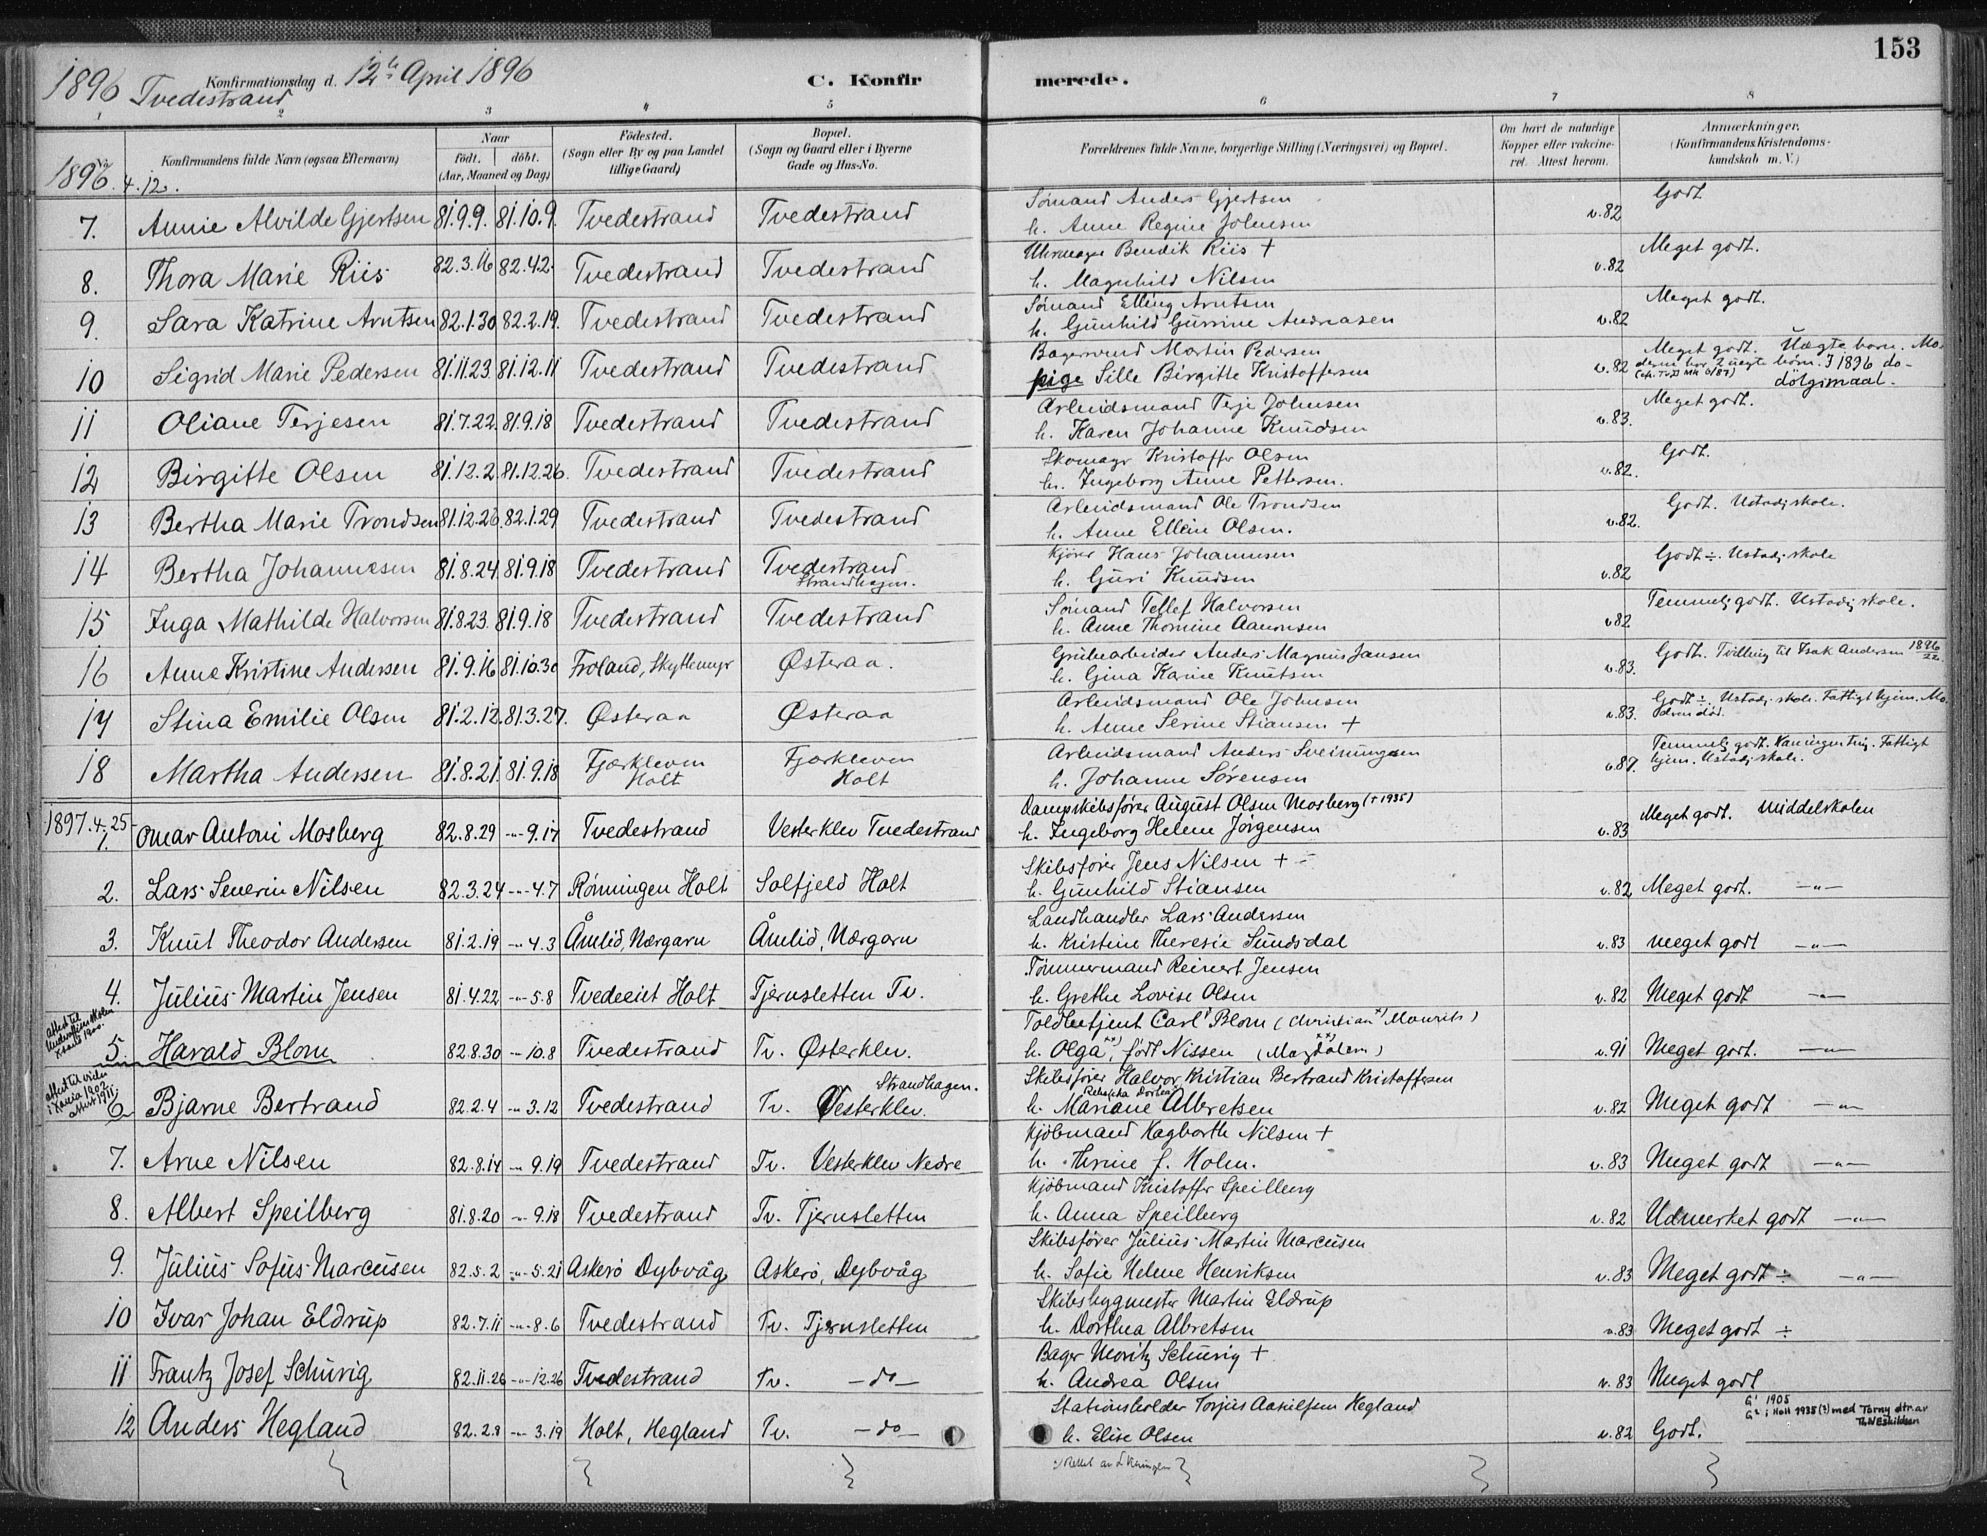 153
1896 Konfirmationsdag d. 12te April 1896 C. Konfirmerede.
Tvedestrand
1 2 3 4 5 6 7 8
No. Konfirmandens fulde Navn (ogsaa Efternavn) Naar födt. döbt. (Aar, Maaned og Dag) Födested. (Sogn eller By og paa Landet tillige Gaard) Bopæl. (Sogn og Gaard eller i Byerne Gade og Hus-No. Forældrenes fulde Navne, borgerlige Stilling (Næringsvei) og Bopæl. Om havt de naturlige Kopper eller vaccineret. Attest herom. Anmærkninger. (Konfirmandens Kristendomskundskab m. V.)
1896. 4.12.
Sömand Anders Gjertsen Godt
7. Annie Alvilde Gjertsen 81.9.9. 81.10.9. Tvedestrand Tvedestrand h. Anne Regine Johnsen v.82
Uhrmager Bendik Riis + Meget godt.
8. Thora Marie Riis 82.3.16 82.4.2. Tvedestrand Tvedestrand h. Magnhild Nilsen v.82
Sömand Elling Arntsen Meget godt.
9. Sara Katrine Arntsen 82.1.30 82.2.19. Tvedestrand Tvedestrand h. Gunhild Gurine Andreasen v.82
Bagersvend Martin Pedersen Meget godt. Uægte barn. Mo-
10 Sigrid Marie Pedersen 81.11.23. 81.12.11 Tvedestrand Tvedestrand pige Sille Birgitte Kristoffersen v.82 deren har 2 uægte börn. I 1896 do-
dölgsmaal.
Arbeidsmand Terje Johnsen Meget godt.
11 Oliane Terjesen 81.7.22. 81.9.18 Tvedestrand Tvedestrand h. Karen Johanne Knudsen v.83.
Skomager Kristoffer Olsen Godt.
12 Birgitte Olsen 81.12.2. 81.12.26. Tvedestrand Tvedestrand h. Ingeborg Anne Pettersen. v.82.
Arbeidsmand Ole Trondsen Godt. Ustadig skole.
13 Bertha Marie Trondsen 81.12.26. 82.1.29. Tvedestrand Tvedestrand h. Anne Elline Olsen. v.82.
Kjörer Hans Johannesen Godt ÷. Ustadig skole
14 Bertha Johannesen 81.8.24. 81.9.18 Tvedestrand Tvedestrand Strandhagen. h. Guri Knudsen v.82
Sömand Tellef Halvorsen Temmelig godt. Ustadig skole.
15 Inga Mathilde Halvorsen 81.8.23. 81.9.18 Tvedestrand Tvedestrand h. Anne Thomine Aanonsen v82
Grubearbeider Anders Magnus Jansen Godt. Tvilling til Isak Andersen 1896/22.
16 Anne Kristine Andersen 81.9.16 81.10.30 Froland, Skyttemyr Østeraa. h. Gina Karine Knutsen v.83.
Arbeidsmand Ole Johnsen Godt ÷. Ustadig skole. Fattigt hjem. Mo-
17 Stina Emilie Olsen 81.2.12. 81.3.27. Østeraa Østeraa h. Anne Serine Stiansen + v.83. deren död.
Arbeidsmand Anders Sveinungsen Temmelig godt. Fattigt
18 Martha Andersen 81.8.21. 81.9.18 Fjærkleven Holt Fjærkleven Holt h. Johanne Sörensen v87. hjem. Ustadig skole.
1897. 4.25- Dampskibsförer August Olsen Mosberg (+1935) Meget godt. Middelskolen
1. Omar Antoni Mosberg 82.8.29 -"- 9.17 Tvedestrand Vesterklev Tvedestrand h. Ingeborg Helene Jörgensen v.83
Skibsförer Jens Nilsen +
2. Lars Severin Nilsen 82.3.24 -"- 4.7 Rönningen Holt Solfjeld Holt h. Gunhild Stiansen v.82 Meget godt. -"-
Landhandler Lars Andersen
3. Knut Theodor Andersen 81.2.19 -"- 4.3 Åmlid, Nærgarn Åmlid, Nærgarn h. Kristine Theresie Sundsdal v.83 meget godt -"-
Tömmermand Reinert Jensen
4. Julius Martin Jensen 81.4.22 -"- 5.8 Tvedeeiet Holt Tjernsletten Tv. h. Grethe Lovise Olsen v.82 Meget godt -"-
Toldbetjent Carl Blom (Christian x) Maurits)
5. Harald Blom 82.8.30 -"- 10.8 Tvedestrand Tv. Østerklev. h. Olga xx), födt Nissen (Magdalene) v.91 Meget godt. -"-
Skibsförer Halvor Kristian Bertrand Kristoffersen
6 Bjarne Bertrand 82.2.4 -"- 3.12 Tvedestrand Tv. Vesterklev. Strandhagen. h. Mariane Albretsen v.82 Meget godt -"-
Kjöbmand Hagbarth Nilsen +
7. Arne Nilsen 82.8.14 -"- 9.19 Tvedestrand Tv. Vesterklev Nedre h. Thrine f. Holm. v.83 Meget godt -"-
Kjöbmand Kristoffer Speilberg
8. Albert Speilberg 81.8.20 -"- 9.18 Tvedestrand Tv. Tjernsletten h. Anna Speilberg v.82 Udmerket godt -"-
Skibsförer Julius Martin Marcusen
9. Julius Sofus Marcusen 82.5.2 -"- 5.21 Askerö Dybvåg Askerö, Dybvåg h. Sofie Helene Henriksen v.83 Meget godt ÷ -"-
Skibsbygmester Martin Eldrup
10 Ivar Johan Eldrup 82.7.11 -"- 8.6 Tvedestrand Tv. Tjernsletten h. Dorthea Albretsen v.83 Meget godt ÷
Bager Moritz Schurig +
11 Frantz Josef Schurig 82.11.26 -"- 12.26 Tvedestrand Tv. -do- h. Andrea Olsen v.83 Meget godt
Stationsholder Torjus Askilsen Hegland G1 1905 G2 i Holt 1935 (?) med Torny dtr. av Th. N Eskildsen
12 Anders Hegland 82.2.8 -"- 3.19 Holt, Hegland Tv. -do- h. Elise Olsen v.82 Godt.